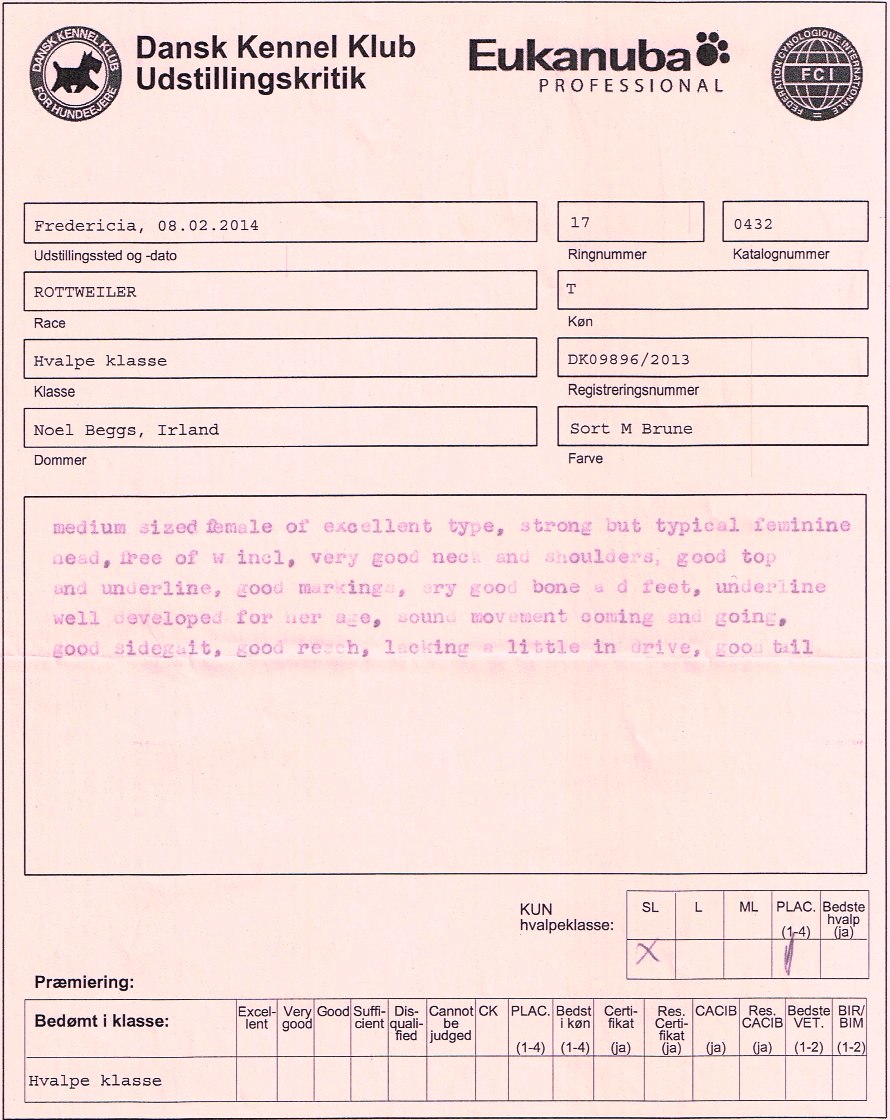 DANSK KENNEL KLUB
FOR HUNDEEJERE
Dansk Kennel Klub
Udstillingskritik
Eukanuba
PROFESSIONAL
FEDERATION CYNOLOGIQUE INTERNATIONALE
FCI
Fredericia, 08.02.2014
17
0432
Udstillingssted og -dato
Ringnummer
Katalognummer
ROTTWEILER
T
Race
Køn
Hvalpe klasse
DK09896/2013
Klasse
Registreringsnummer
Noel Beggs, Irland
Sort M Brune
Dommer
Farve
medium sized female of excellent type, strong but typical feminine
head, free of w incl, very good neck and shoulders, good top
and underline, good markings, ery good bone a d feet, underline
well developed for her age, sound movement coming and going,
good sidegait, good reach, lacking a little in drive, good tail
KUN
hvalpeklasse:
SL L ML PLAC. (1-4) Bedste hvalp (ja)
X 1
Præmiering:
Bedømt i klasse:
Excel-lent Very good Good Suffi-cient Dis-quali-fied Cannot be judged CK PLAC. (1-4) Bedst i køn (1-4) Certi-fikat (ja) Res. Certi-fikat (ja) CACIB (ja) Res. CACIB (ja) Bedste VET. (1-2) BIR/BIM (1-2)
Hvalpe klasse